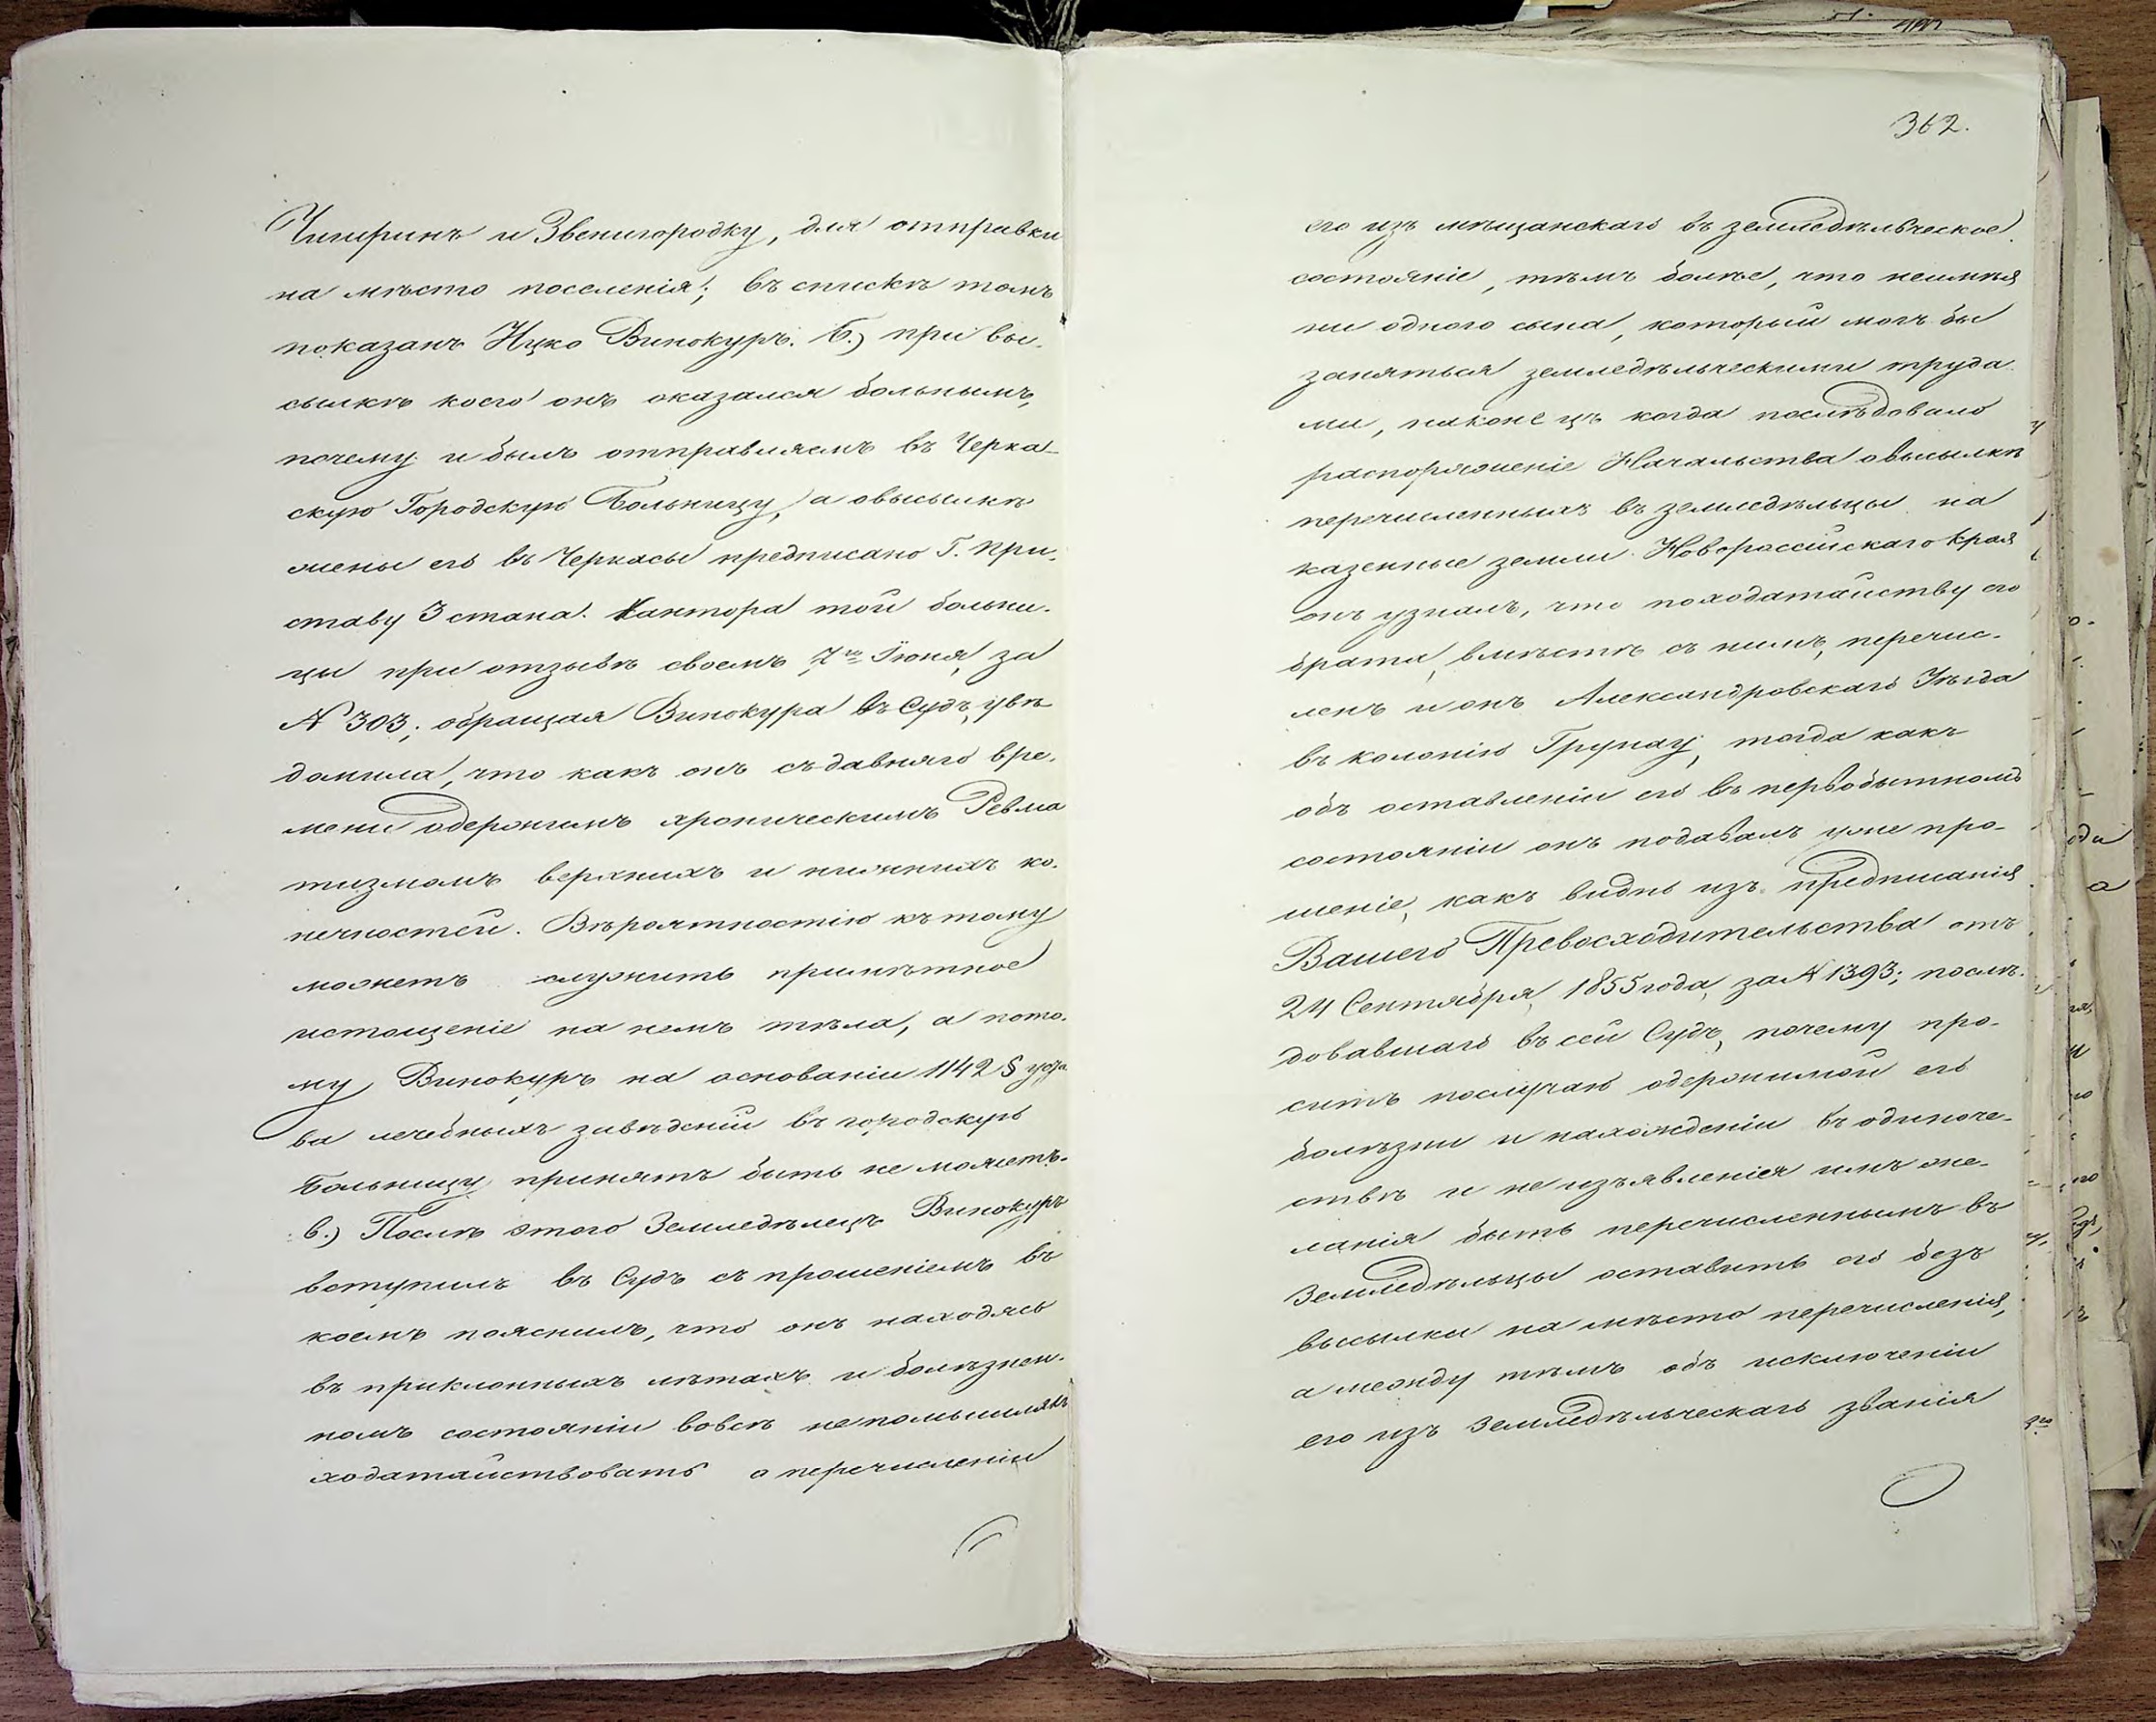 Чигиринъ и Звенигородку, для отправки
на мѣсто поселенія; въ спискѣ томъ
показанъ Ицко Винокуръ. Б.) при вы-
сылкѣ коего онъ оказался больнымъ,
почему и былъ отправляемъ въ Черка-
скую Городскую Больницу, а овысылкѣ
жены его въ Черкасы предписано Г. При-
ставу 3 стана. Кантора той больни-
цы при отзывѣ своемъ 7го Іюня, за
№ 303; обращая Винокура въ Судъ, увѣ
домила, что какъ онъ съ давняго вре-
мени одержимъ хроническимъ Ревма
тизмомъ верхнихъ и нижнихъ ко-
нечностей. Вѣроятностію къ тому
можетъ служить примѣтное
истощеніе на немъ тѣла, а пото-
му Винокуръ на основаніи 1142 § уста
ва лечебныхъ завѣденій въ городскую
больницу принятъ быть не можетъ.
в.) Послѣ этого Земледѣлецъ Винокуръ
вступилъ въ Судъ съ прошеніемъ въ
коемъ пояснилъ, что онъ находясь
въ приклонныхъ лѣтахъ и болѣзнен-
номъ состояніи вовсѣ непомышлялъ
ходатайствовать о перечисленіи
362.
его изъ мѣщанскаго въ земледѣльческое
состояніе, тѣмъ болѣе, что неимѣя
ни одного сына, который могъ бы
заняться земледѣльческими труда-
ми, наконецъ когда послѣдовало
распоряженіе Начальства овысылкѣ
перечисленныхъ въ земледѣльцы на
казенные земли Новороссійскаго Края
онъ узналъ, что походатайству его
брата, вмѣстѣ съ нимъ, перечис-
ленъ и онъ Александровскаго Уѣзда
въ колонію Грунау, тогда какъ
объ оставленіи его въ первобытномъ
состояніи онъ подавалъ уже про-
шеніе, какъ видно изъ предписанія
Вашего Превосходительства отъ
24 Сентября 1855 года, за № 1393; послѣ-
довавшаго въ сей Судъ, почему про-
ситъ послучаю одержимой его
болѣзни и нахожденіи въ одиноче-
ствѣ и не изъявленія имъ же-
ланія быть перечисленнымъ въ
Земледѣльцы оставить его безъ
высылки на мѣсто перечисленія,
а между тѣмъ объ исключеніи
его изъ Земледѣльческаго званія